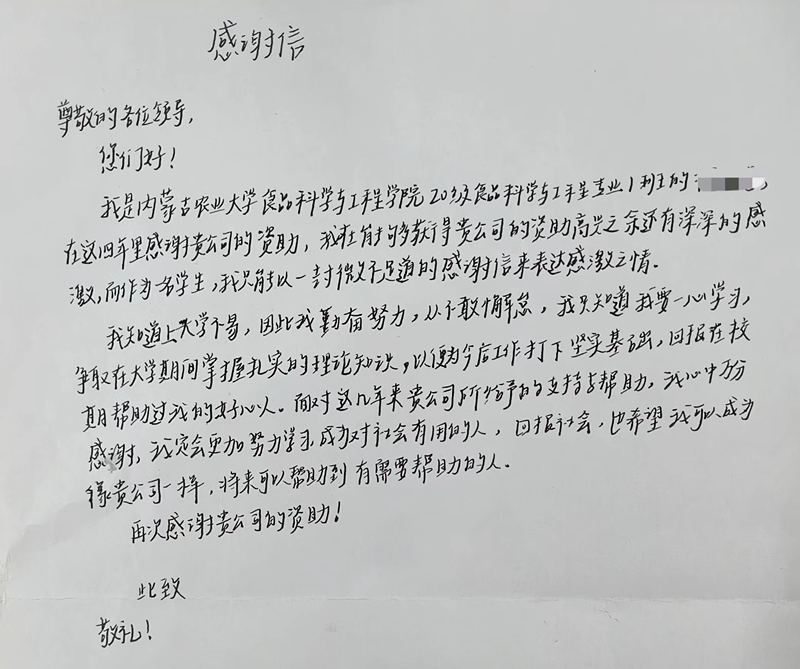 感谢信
尊敬的各位领导,
您们好!
我是内蒙古农业大学食品科学与工程学院20级食品科学与工程专业1班的
在这四年里感谢贵公司的资助,我在能够多获得贵公司的资助高兴之余还有深深的感
激,而作为一名学生,我只能以一封微不足道的感谢信来表达感激之情。
我知道上大学不易,因此我勤奋努力,从不敢懈怠,我只知道我要一心学习,
争取在大学期间掌握扎实的理论知识,以便为今后工作打下坚实基础,回报在校
期帮助过我的好心人。面对这几年来贵公司所给予的支持与帮助,我心中万分
感谢,我定会更加努力学习,成为对社会有用的人,回报社会,也希望我可以成为
像贵公司一样,将来可以帮助到有需要帮助的人。
再次感谢贵公司的资助!
此致
敬礼!